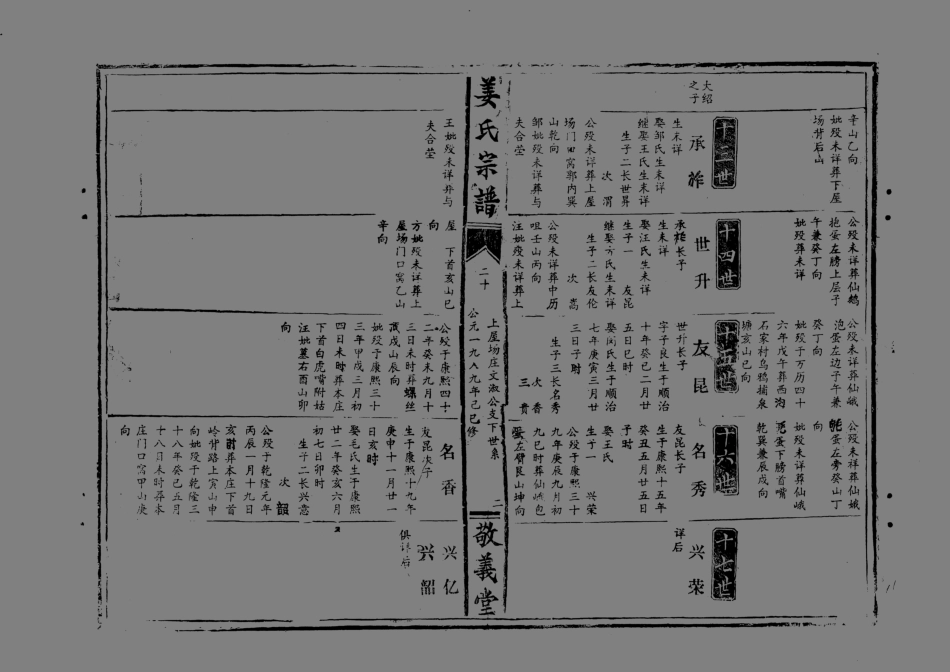 大绍
之子
辛山乙向
妣殁未详葬下屋
场背后山
十三世
承祚
生未详
娶邹氏生未详
继娶王氏生未详
生子二长世昇
次渭
公殁未详葬上屋
场门田窝郭内巽
山乾向
邹妣殁未详葬与
夫合茔
王妣殁未详葬与
夫合茔
公殁未详葬仙鹅
抱蛋左膀上层子
午兼癸丁向
妣殁葬未详
十四世
世升
承祚长子
生未详
娶汪氏生未详
生子一 友昆
继娶方氏生未详
生子二长友伦
次嵩
公殁未详葬中历
咀壬山丙向
汪妣殁未详葬上
屋 下首亥山巳
向
方妣殁未详葬上
屋场门口窝乙山
辛向
公殁未详葬仙峨
泡蛋左边子午兼
癸丁向
妣殁于万历四十
六年戊午葬西沟
石家村乌鸦捕泉
塘亥山巳向
十五世
友昆
世升长子
字子良生于顺治
十年癸巳二月廿
五日巳时
娶闵氏生于顺治
七年庚寅三月廿
三日子时
生子三长名秀
次香
三贵
公殁于康熙四十
二年癸未九月十
三日未时葬螺丝
茂戌山辰向
妣殁于康熙三十
三年甲戌三月初
四日未时葬本庄
下首白虎嘴附姑
汪妣墓右酉山卯
向
公殁未祥葬仙娥
㲒蛋左旁癸山丁
向
妣殁未详葬仙峨
蛋下膀首嘴
乾巽兼辰戌向
十六世
名秀
友昆长子
生于康熙十五年
癸丑五月廿五日
子时
娶王氏
生子一 兴荣
公殁于康熙三十
九年庚辰九月初
九巳时葬仙峨包
蛋左臂艮山坤向
名香
友昆次子
生于康熙十九年
庚申十一月廿一
日亥时
娶毛氏生于康熙
廿二年癸亥六月
初七日卯时
生子二长兴意
次韶
公殁于乾隆元年
丙辰一月十九日
亥时葬本庄下首
岭背路上寅山申
向妣殁于乾隆三
十八年癸巳五月
十八日未时葬本
庄门口窝甲山庚
向
十七世
兴荣
详后
兴亿
兴韶
俱详后
姜氏宗譜
二十
上屋场庄文淑公支下世系
公元一九八九年己巳修
二
敬義堂